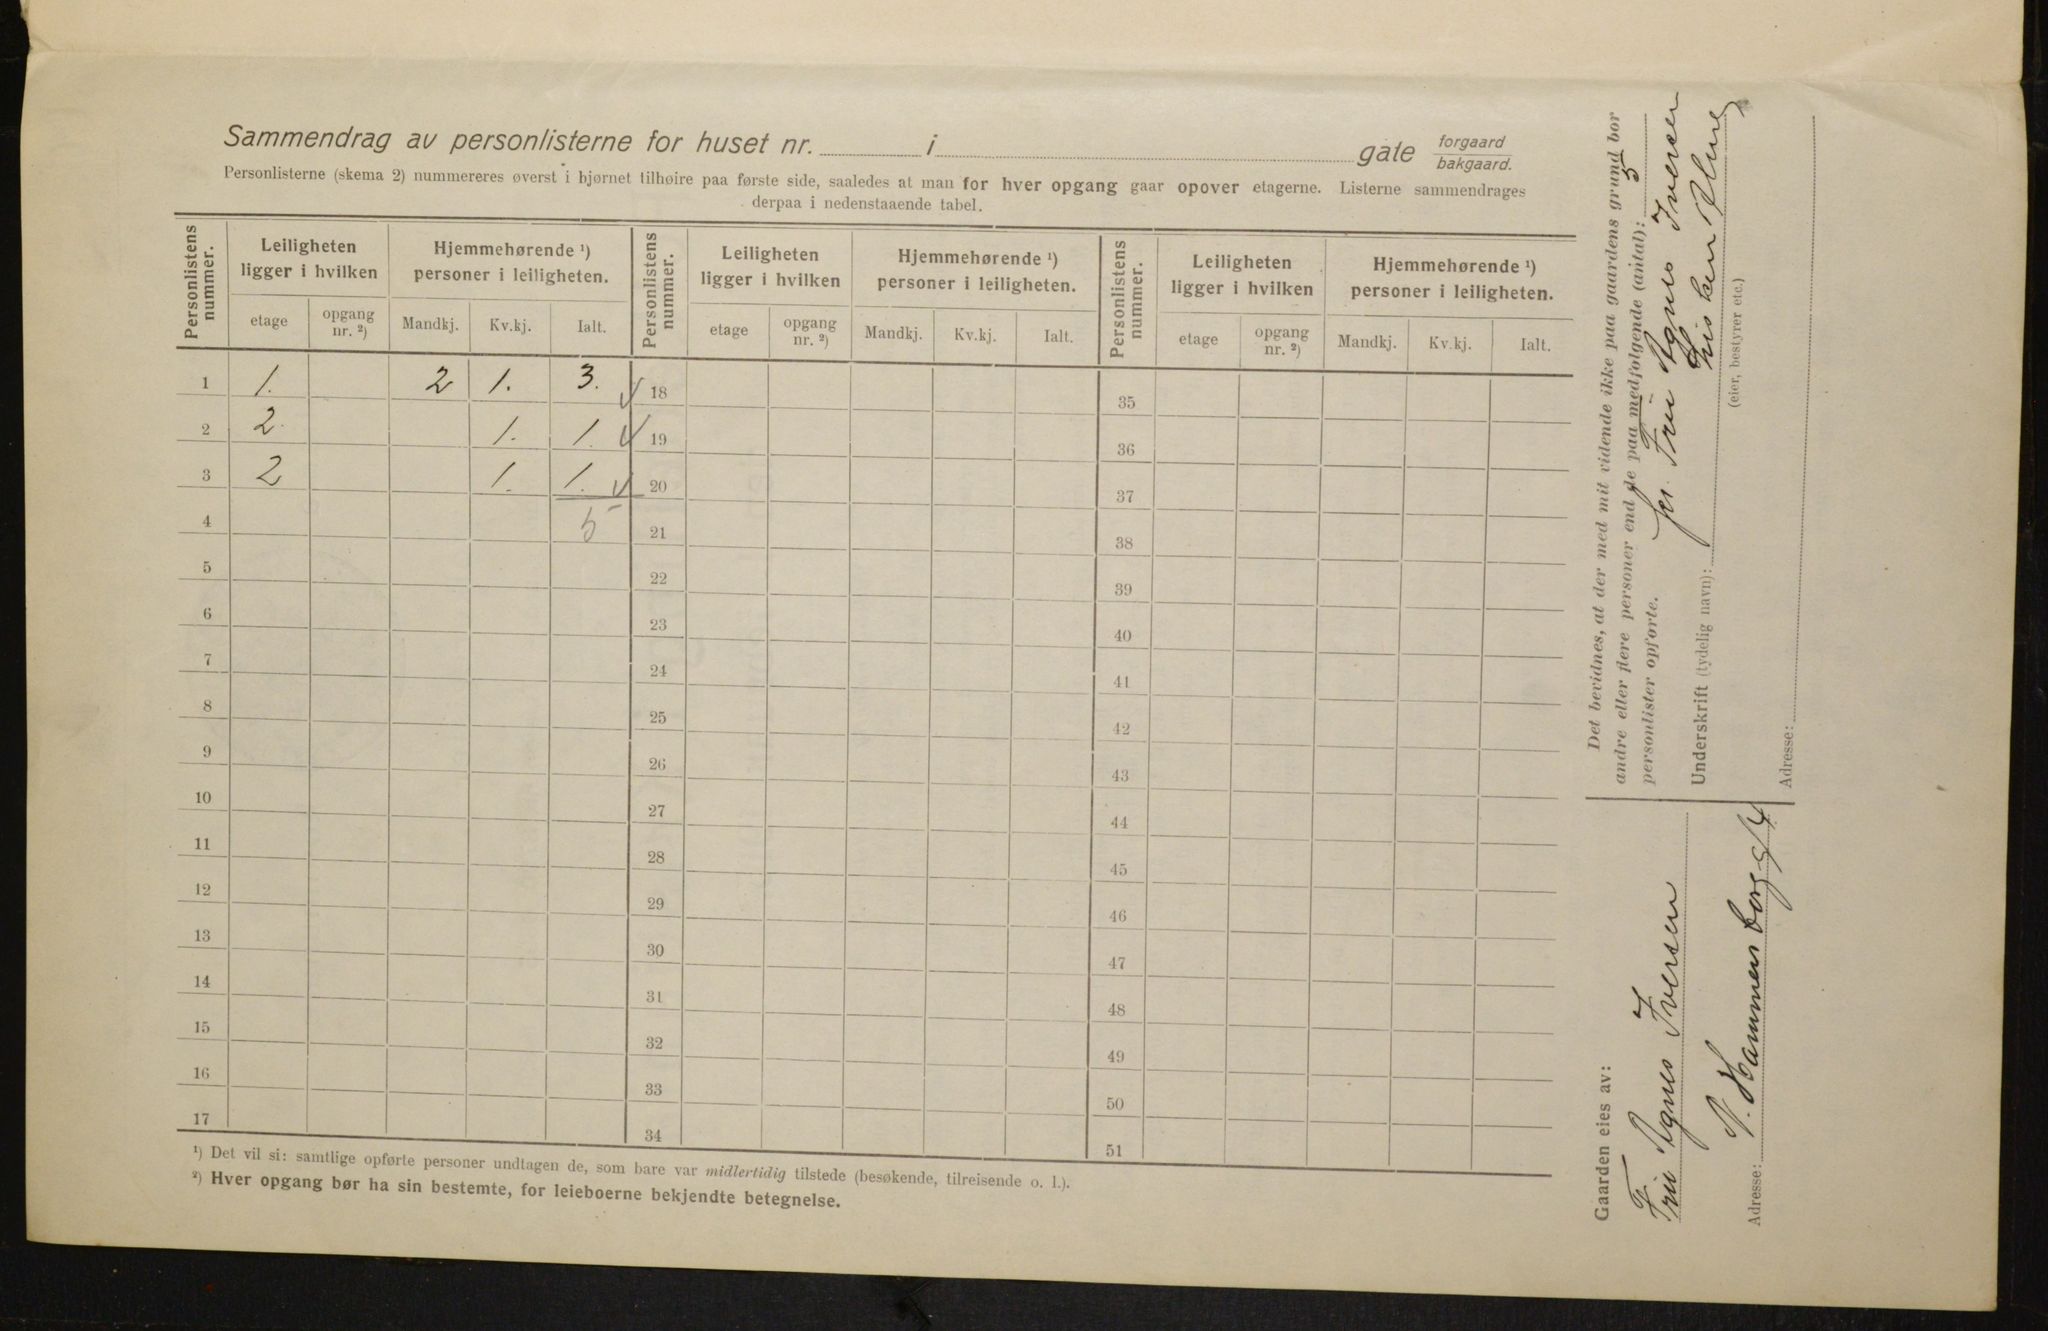 Sammendrag av personlisterne for huset nr. i gate forgaard
bakgaard.
Personlisterne (skema 2) nummereres øverst i hjørnet tilhøire paa første side, saaledes at man for hver opgang gaar opover etagerne. Listerne sammendrages
derpaa i nedenstaaende tabel.
Personlistens nummer. Leiligheten ligger i hvilken Hjemmehørende ¹) personer i leiligheten. Personlistens nummer. Leiligheten ligger i hvilken Hjemmehørende ¹) personer i leiligheten. Personlistens nummer. Leiligheten ligger i hvilken Hjemmehørende ¹) personer i leiligheten.
etage opgang nr. ²) Mandkj. Kv.kj. Ialt. etage opgang nr. ²) Mandkj. Kv.kj. Ialt. etage opgang nr. ²) Mandkj. Kv.kj. Ialt.
1 1. 2 1. 3. 18 35
2 2. 1. 1. 19 36
3 2 1. 1. 20 37
4 5 21 38
5 22 39
6 23 40
7 24 41
8 25 42
9 26 43
10 27 44
11 28 45
12 29 46
13 30 47
14 31 48
15 32 49
16 33 50
17 34 51
¹) Det vil si: samtlige opførte personer undtagen de, som bare var midlertidig tilstede (besøkende, tilreisende o. l.).
²) Hver opgang bør ha sin bestemte, for leieboerne bekjendte betegnelse.
Gaarden eies av:
Fru Agnes Iversen
Adresse: N. Hammersborg g/4
Det bevidnes, at der med mit vidende ikke paa gaardens grund bor
andre eller flere personer end de paa medfølgende (antal): 3
personlister opførte.
for Fru Agnes Iversen
Underskrift (tydelig navn):
(eier, bestyrer etc.)
Adresse: